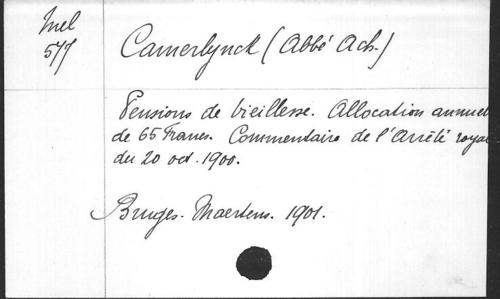 Mel
577
Camerlynck (Abbé Ach.)
Pensions de vieillesse. Allocation annuel
de 65 Francs. Commentaire de l'Arrêté royal
du 20 oct. 1900.
Bruges. Maertens. 1901.